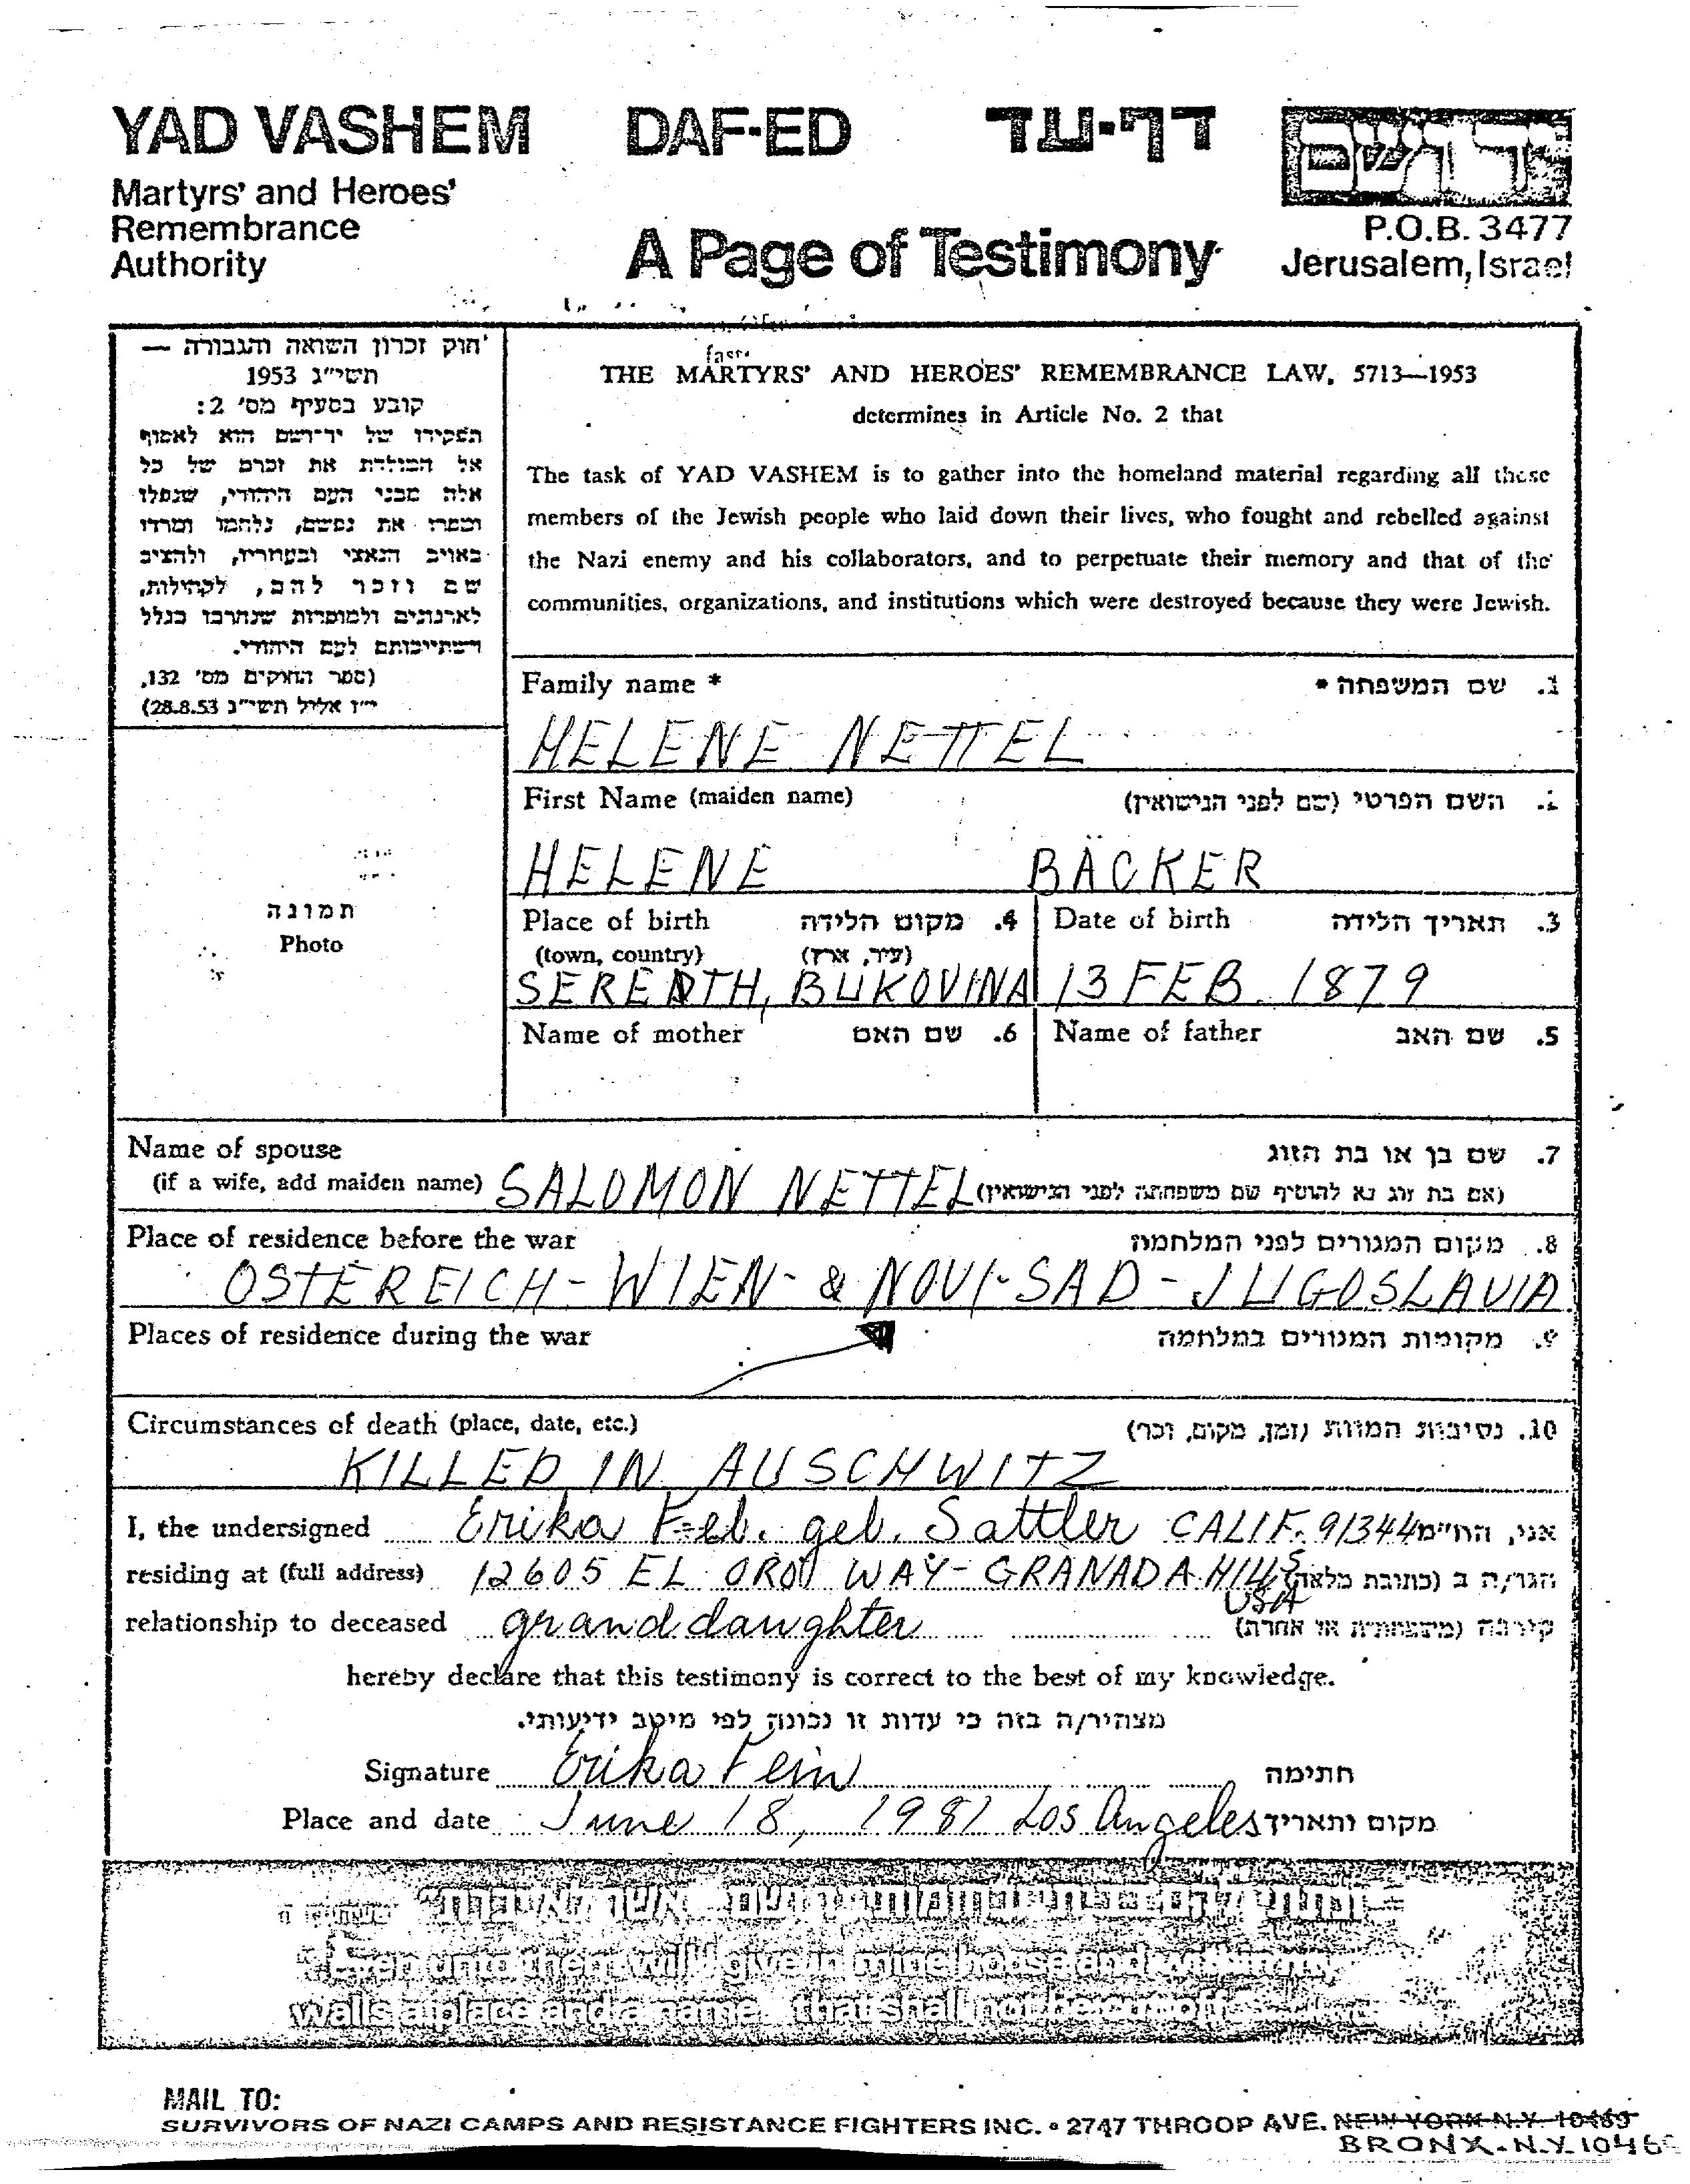 YAD VASHEM DAF-ED דף-עד
Martyrs' and Heroes'
Remembrance
Authority
A Page of Testimony
P.O.B. 3477
Jerusalem, Israel
חוק זכרון השואה והגבורה —
תשי"ג 1953
קובע בסעיף מס' 2:
תפקידו של יד-ושם הוא לאסוף
אל המולדת את זכרם של כל
אלה מבני העם היהודי, שנפלו
ומסרו את נפשם, נלחמו ומרדו
באויב הנאצי ובעוזריו, ולהציב
שם וזכר להם, לקהילות,
לארגונים ולמוסדות שנחרבו בגלל
השתייכותם לעם היהודי.
(ספר החוקים מס' 132,
י"ז אלול תשי"ג 28.8.53)
THE MARTYRS' AND HEROES' REMEMBRANCE LAW, 5713—1953
determines in Article No. 2 that
The task of YAD VASHEM is to gather into the homeland material regarding all those
members of the Jewish people who laid down their lives, who fought and rebelled against
the Nazi enemy and his collaborators, and to perpetuate their memory and that of the
communities, organizations, and institutions which were destroyed because they were Jewish.
Family name * 1. שם המשפחה *
HELENE NETTEL
First Name (maiden name) 2. השם הפרטי (שם לפני הנישואין)
HELENE BÄCKER
תמונה
Photo
Place of birth 4. מקום הלידה Date of birth 3. תאריך הלידה
(town, country) (עיר, ארץ)
SERETH, BUKOVINA 13 FEB. 1879
Name of mother 6. שם האם Name of father 5. שם האב
Name of spouse 7. שם בן או בת הזוג
(if a wife, add maiden name) SALOMON NETTEL (אם בת זוג נא להוסיף שם משפחתה לפני הנישואין)
Place of residence before the war 8. מקום המגורים לפני המלחמה
OSTEREICH - WIEN - & NOVI-SAD - JUGOSLAVIA
Places of residence during the war 9. מקומות המגורים במלחמה
Circumstances of death (place, date, etc.) 10. נסיבות המוות (זמן, מקום, וכו')
KILLED IN AUSCHWITZ
I, the undersigned Erika geb. Sattler CALIF. 91344 אני, הח"מ
residing at (full address) 12605 EL ORO WAY - GRANADA HILLS הגר/ה ב (כתובת מלאה)
USA
relationship to deceased granddaughter קירבה (משפחתית או אחרת)
hereby declare that this testimony is correct to the best of my knowledge.
מצהיר/ה בזה כי עדות זו נכונה לפי מיטב ידיעותי.
Signature Erika Fein חתימה
Place and date June 18, 1981 Los Angeles מקום ותאריך
Even unto them will I give in mine house and within my
walls a place and a name... that shall not be cut off
MAIL TO:
SURVIVORS OF NAZI CAMPS AND RESISTANCE FIGHTERS INC. • 2747 THROOP AVE. NEW YORK N.Y. 10469
BRONX - N.Y.